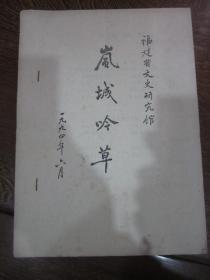 福建省文史研究馆
岚城吟草
一九九四年六月